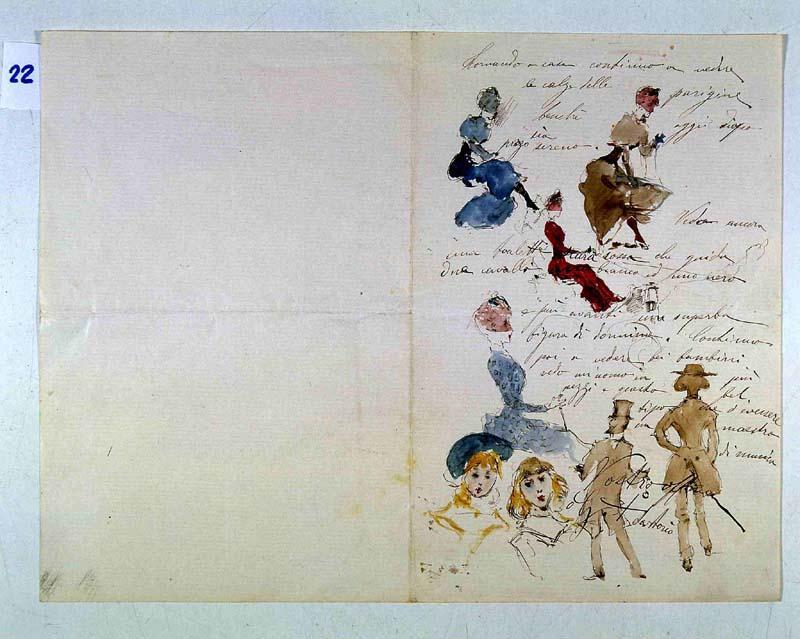 22
Tornando a casa continuo a vedere
le calze delle parigine
benchè oggi dopo
sia
sereno.
Vedo ancora
una rossa che guida
due cavalli bianco ed uno nero
e più avanti una superba
figura di donnina. Continuo
poi a vedere bei bambini
vedo un'uomo in più
pezzi e questo bel
tipo che
maestro
di musica
Vostro